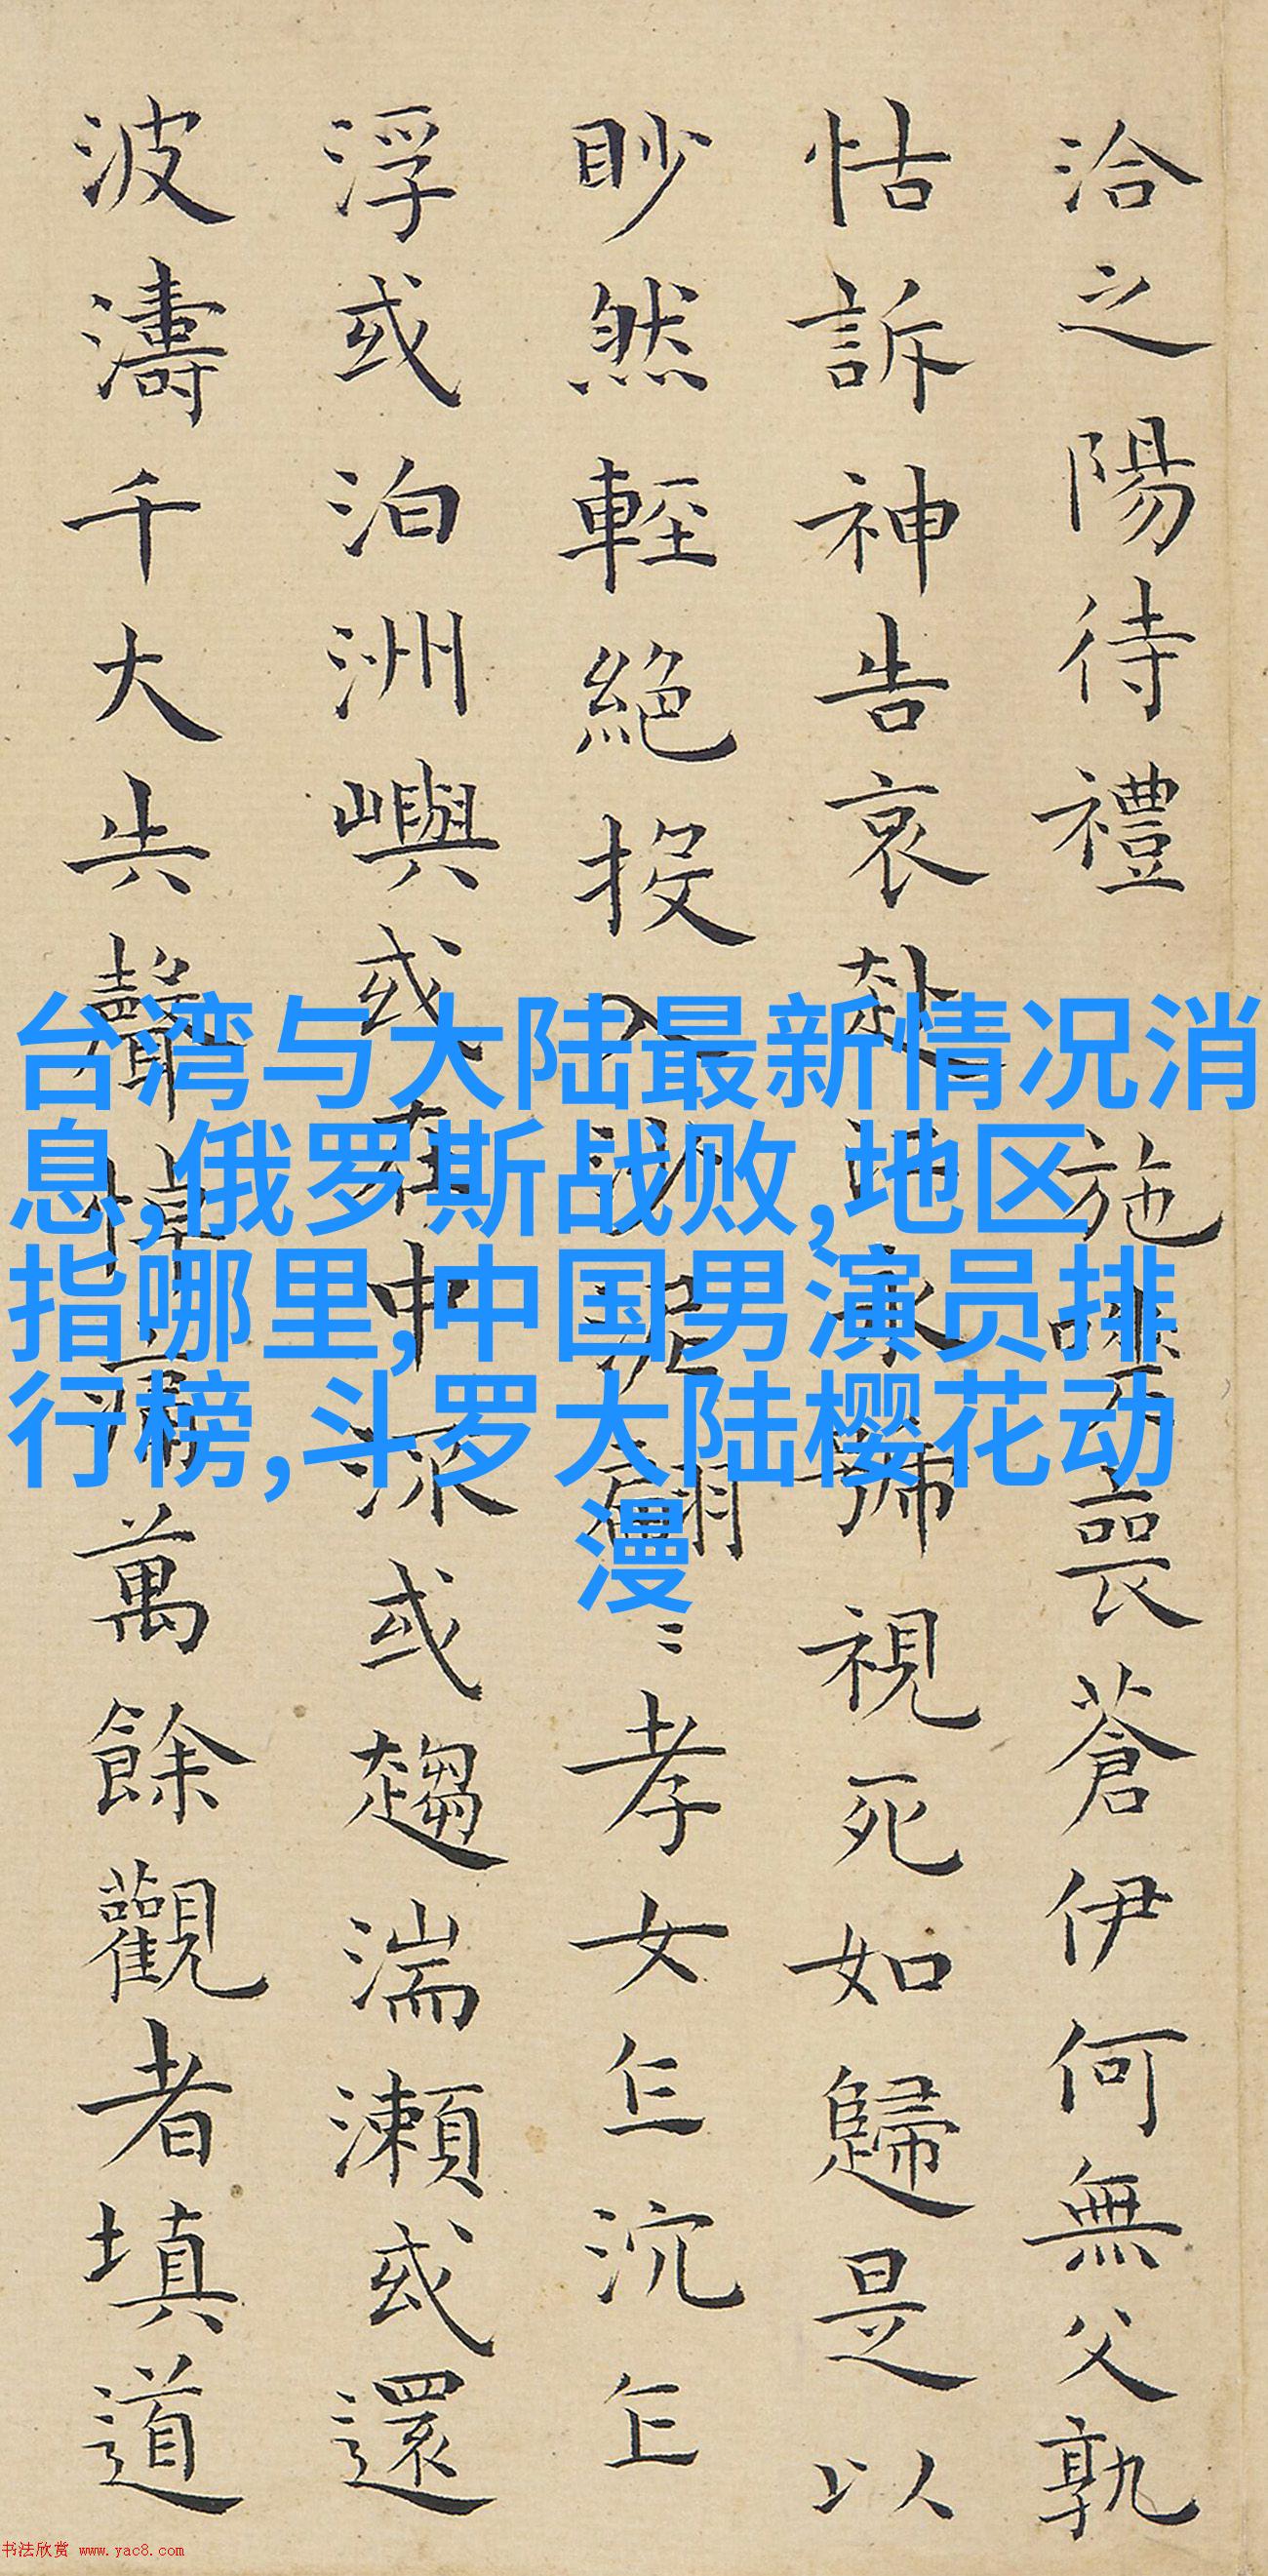 洽之陽待禮 施 喪蒼伊何無父孰
怙訴神告哀赴 永號視死如歸是以
眇然輕絕投入沙泥翩二孝女乍沉乍
浮或泊洲嶼或在中流或趨湍瀨或還
波濤千大失聲悼 萬餘觀者填道
台湾与大陆最新情况消
息,俄罗斯战败,地区
指哪里,中国男演员排
行榜,斗罗大陆樱花动
漫
书法欣赏 www.yac8.com